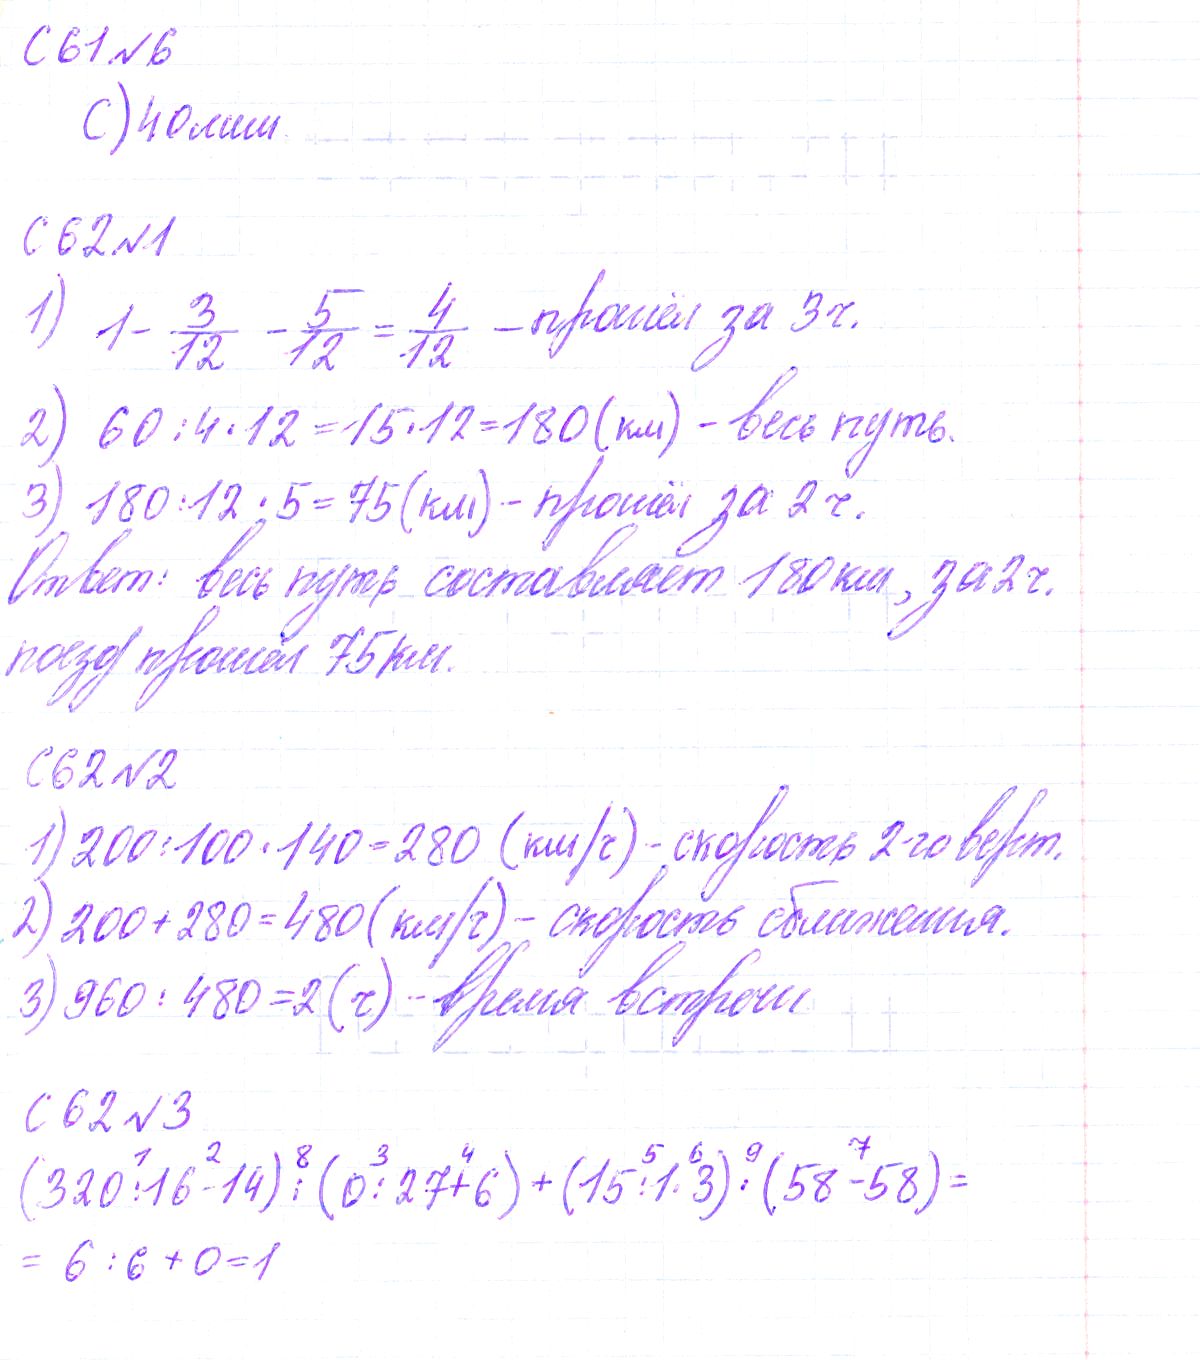 С 61 №6
С) 40 мин
С 62 №1
1) 1 - 3/12 - 5/12 = 4/12 - прошёл за 3 ч.
2) 60 : 4 · 12 = 15 · 12 = 180 (км) - весь путь.
3) 180 : 12 · 5 = 75 (км) - прошёл за 2 ч.
Ответ: весь путь составляет 180 км, за 2 ч.
поезд прошёл 75 км.
С 62 №2
1) 200 : 100 · 140 = 280 (км/ч) - скорость 2-го верт.
2) 200 + 280 = 480 (км/ч) - скорость сближения.
3) 960 : 480 = 2 (ч) - время встречи
С 62 №3
1 2 8 3 4 5 6 9 7
(320 : 16 - 14) : (0 : 27 + 6) + (15 : 1 · 3) · (58 - 58) =
= 6 : 6 + 0 = 1